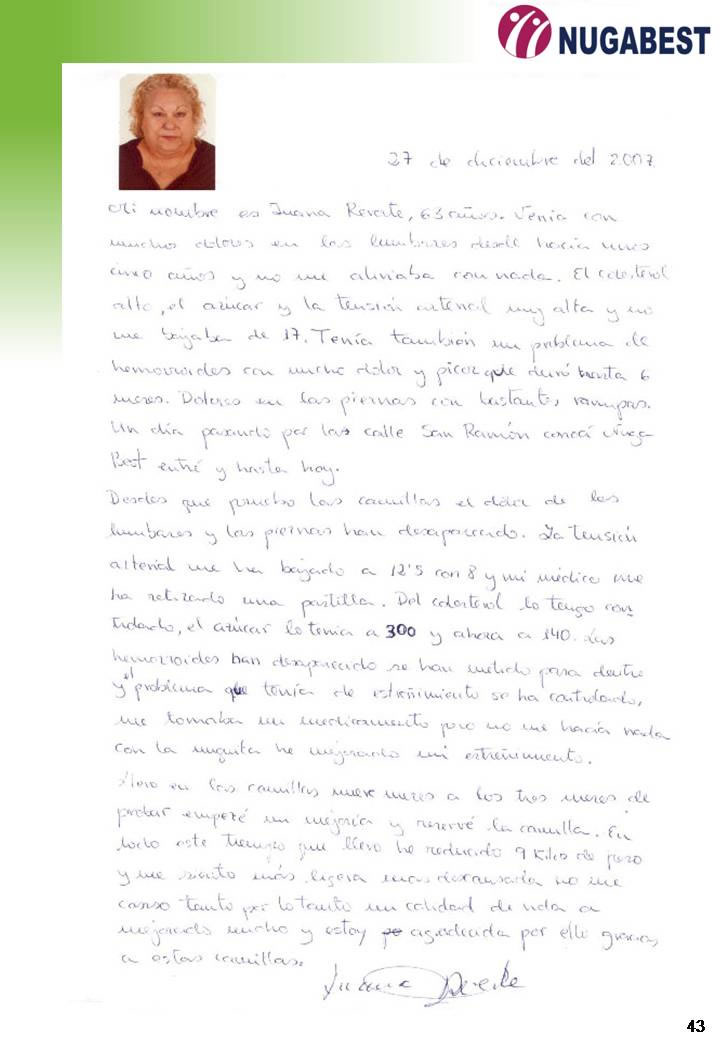 NUGABEST
27 de diciembre del 2.007
Mi nombre es Juana Reverte, 63 años. Venía con
muchos dolores en las lumbares desde hacía unos
cinco años y no me aliviaba con nada. El colesterol
alto, el azúcar y la tensión arterial muy alta y no
me bajaba de 17. Tenía también un problema de
hemorroides con mucho dolor y picor que duró hasta 6
meses. Dolores en las piernas con bastantes rampas.
Un día pasando por las calle San Ramón conocí Nuga
Best entré y hasta hoy.
Desdes que pruebo las camillas el dolor de las
lumbares y las piernas han desaparecido. La tensión
arterial me ha bajado a 12'5 con 8 y mi médico me
ha retirado una pastilla. Del colesterol lo tengo con-
trolado, el azúcar lo tenía a 300 y ahora a 140. Las
hemorroides han desaparecido se han metido para dentro
y el problema que tenía de estreñimiento se ha controlado,
me tomaba un medicamento pero no me hacía nada
con la nuguita he mejorado mi estreñimiento.
Llevo en las camillas nueve meses a los tres meses de
probar empezé mi mejoría y reservé la camilla. En
todo este tiempo que llevo he reducido 9 kilos de peso
y me siento más ligera mas descansada no me
canso tanto por lo tanto mi calidad de vida a
mejorado mucho y estoy agradecida por ello gracias
a estas camillas.
Juana Reverte
43